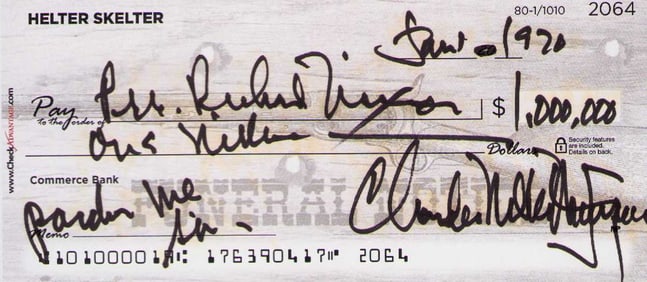 HELTER SKELTER
80-1/1010 2064
Jan. 1970
www.CheckAdvantage.com
Pay to the order of Pres. Richard Nixon $ 1,000,000
One Million Dollars
Security features are included. Details on back.
Commerce Bank
FUNERAL
Memo pardon me sir
176390417 2064